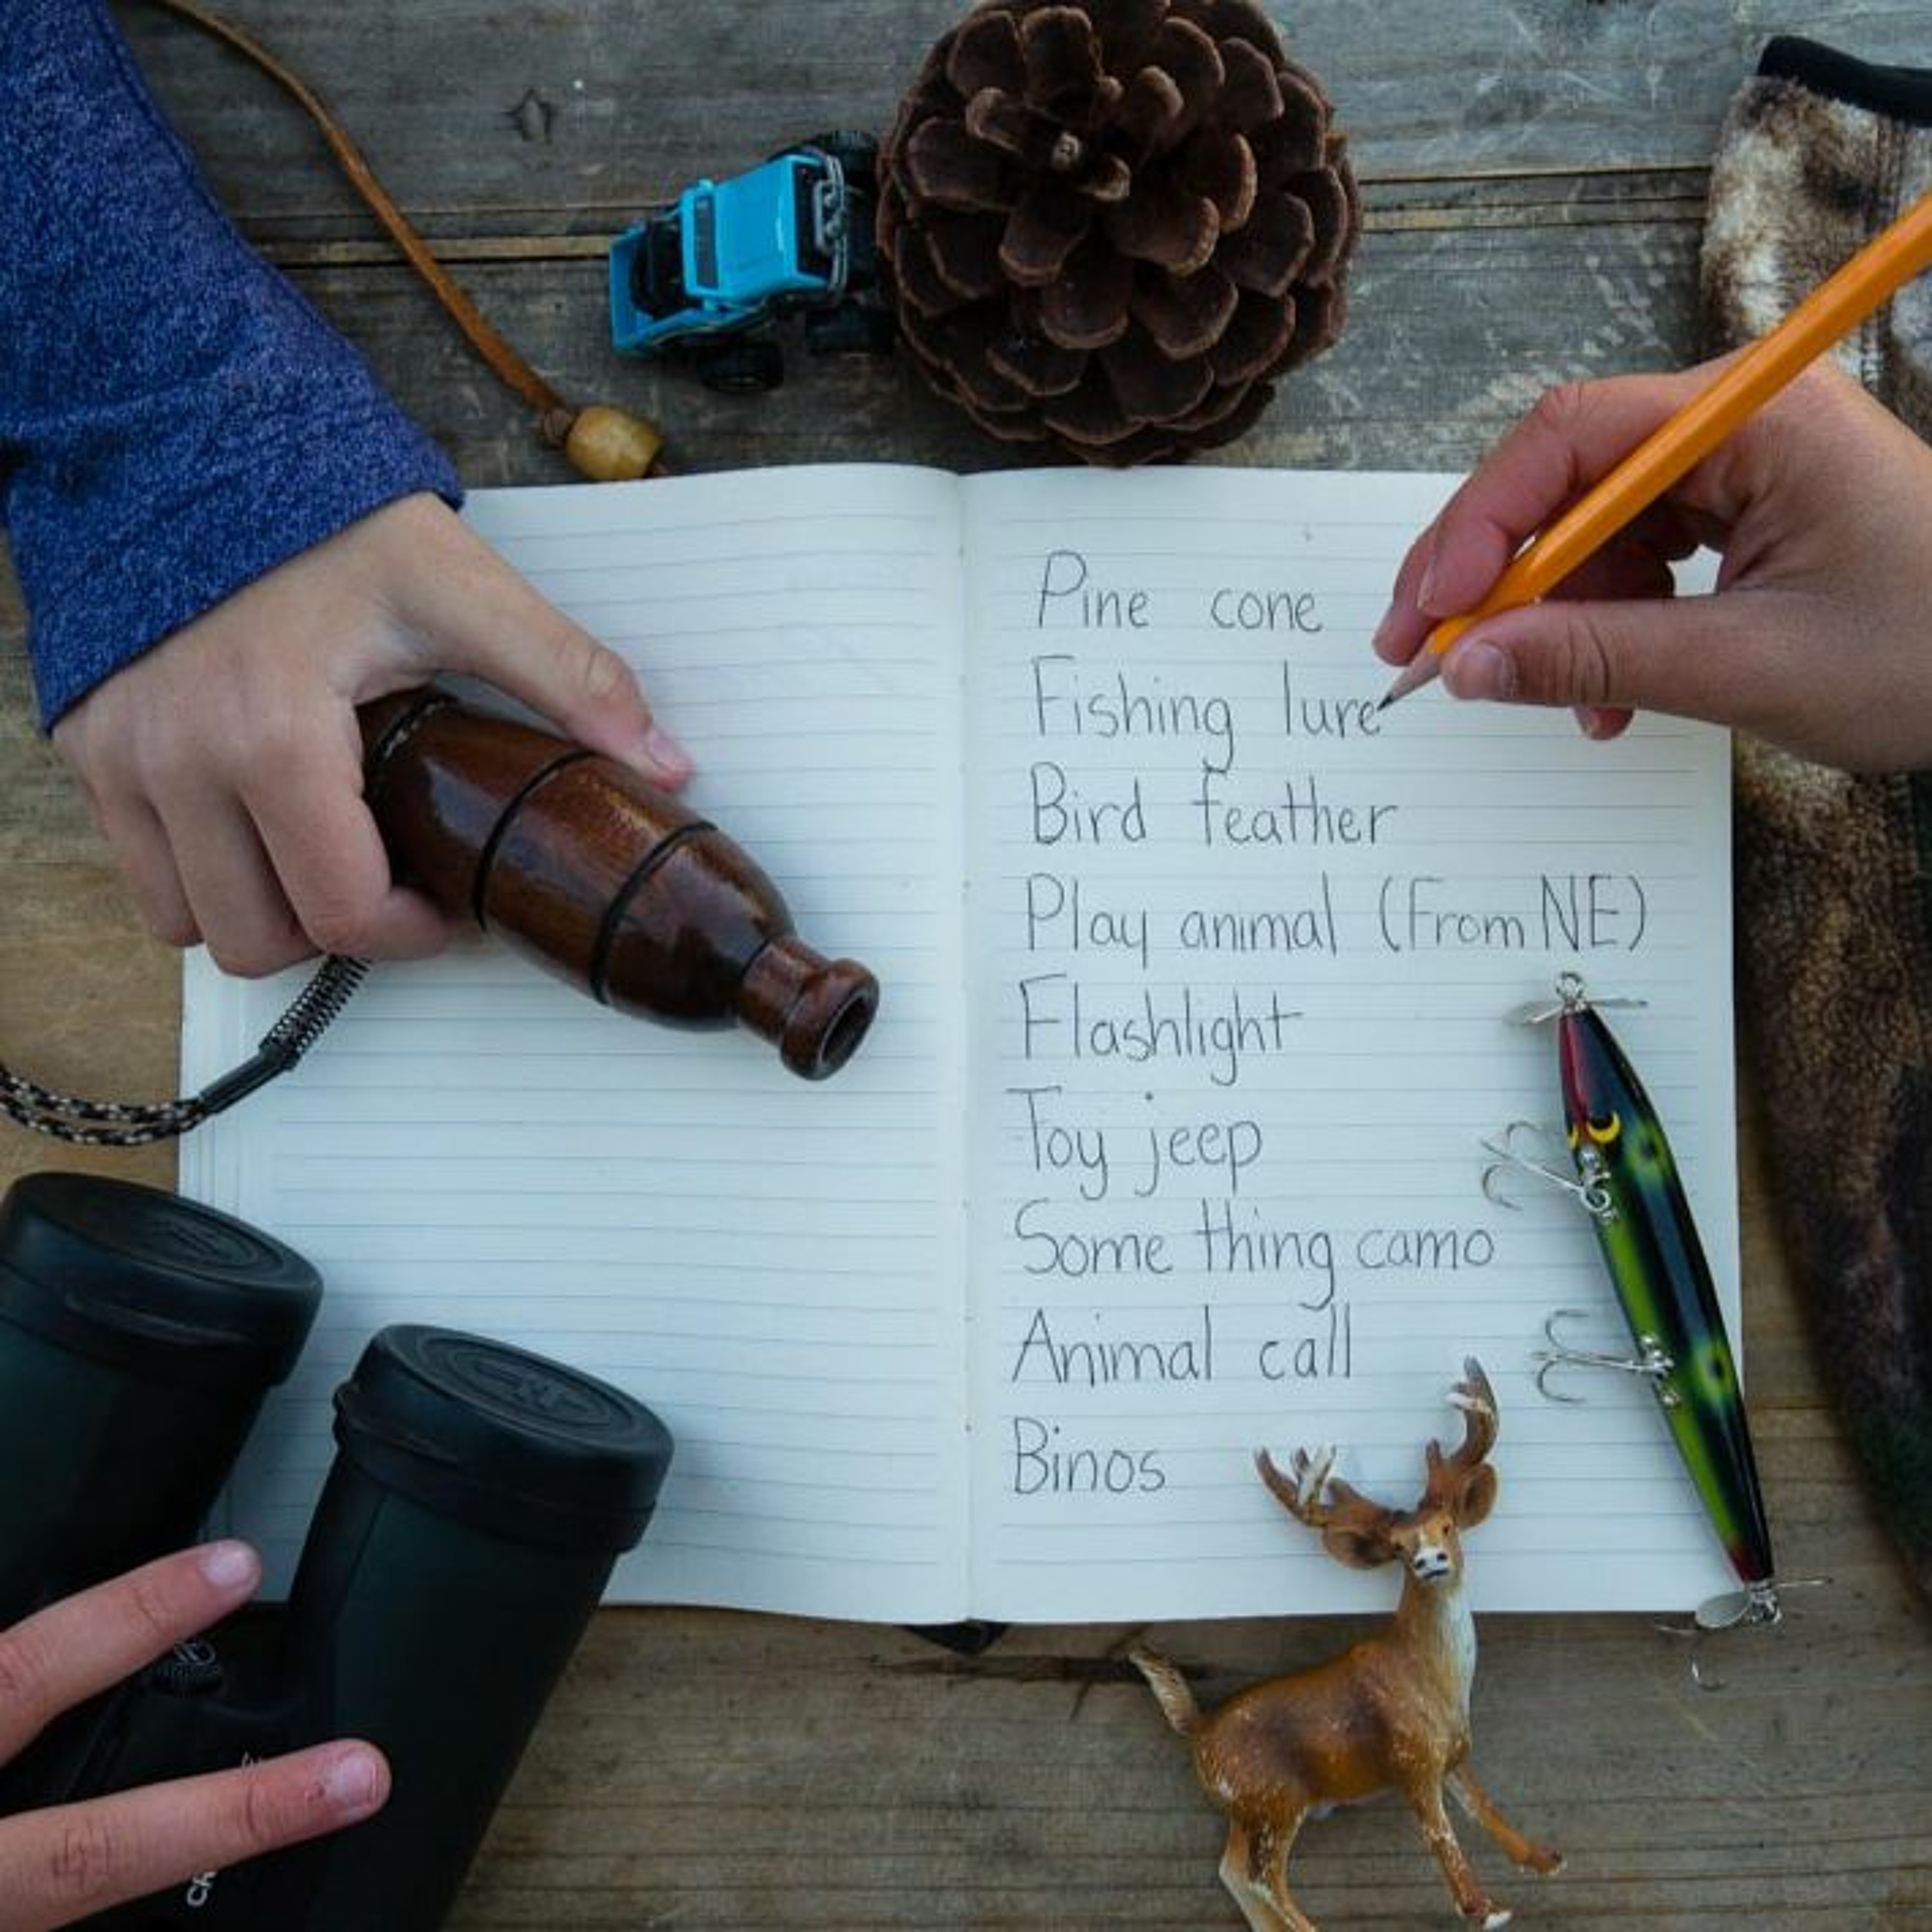 Pine cone
Fishing lure
Bird feather
Play animal (From NE)
Flashlight
Toy jeep
Some thing camo
Animal call
Binos